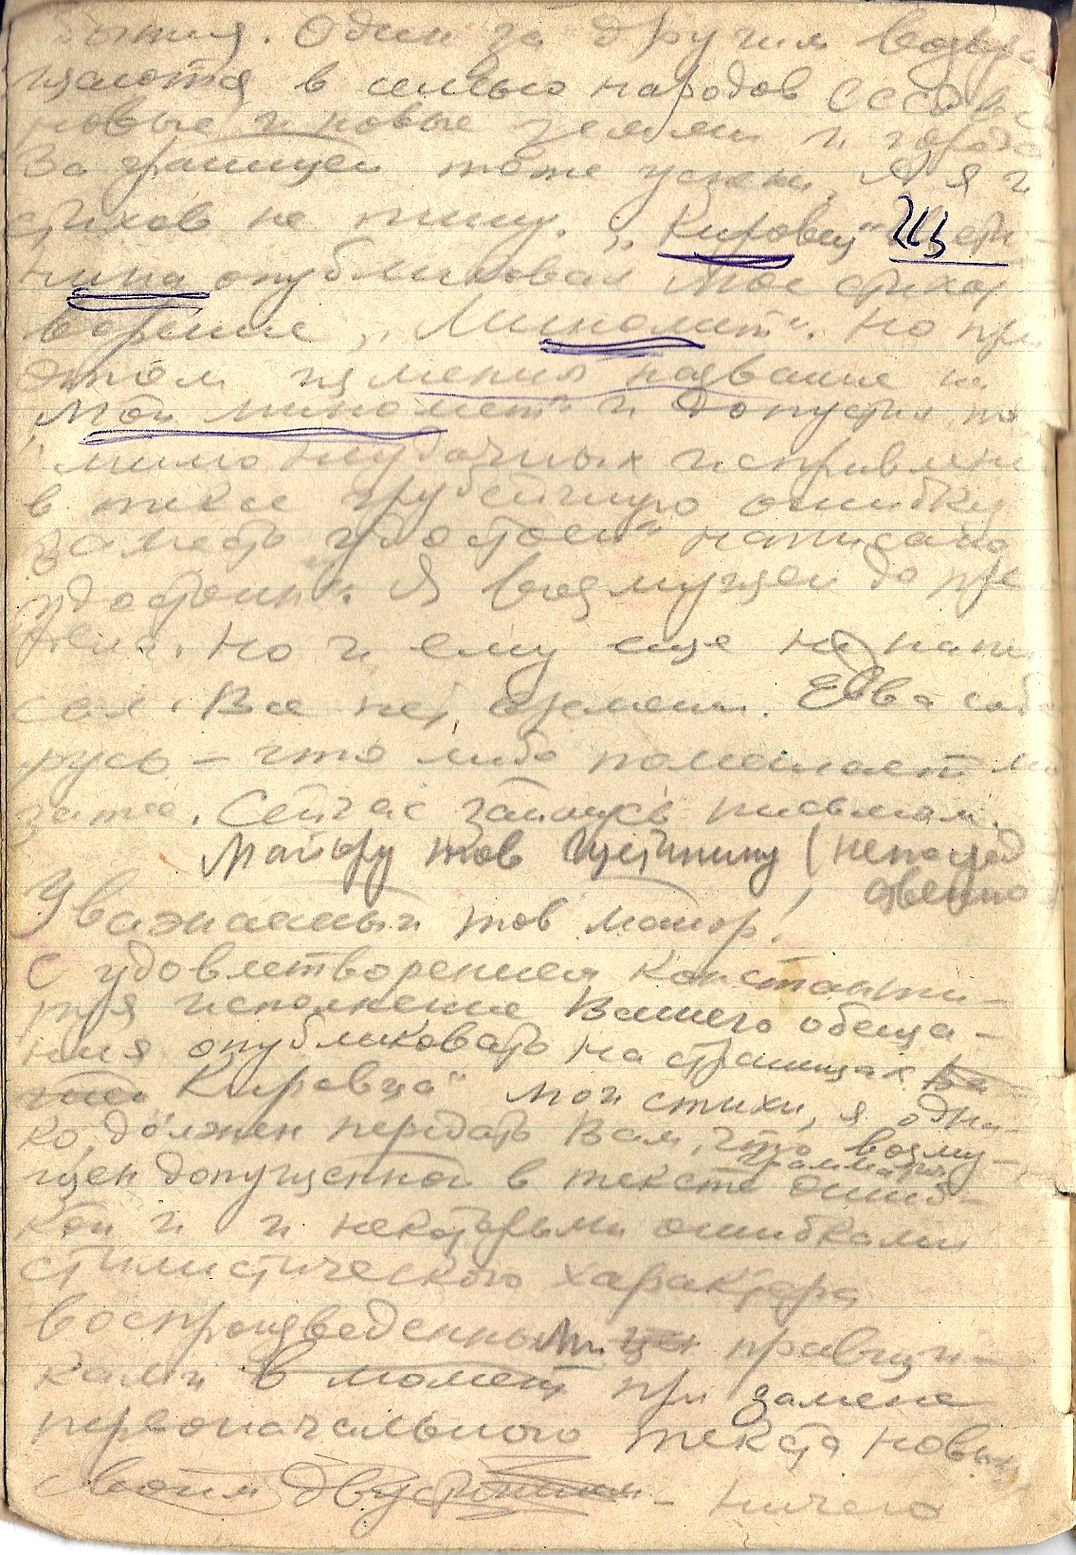 бытия. Один за другим возвра
щаются в семью народов СССР все
новые и новые земли и города.
За границей тоже успехи, А я и
стихов не пишу. „Кировец“ Истю-
нина опубликовал мое стихот
ворение „Миномет“. Но при
этом изменил название на
„Мой миномет“ и допустил по
мимо неудачных исправлений
в тексте грубейшую ошибку
вместо „удостоен“ написано
удостоин“. Я возмущен до пре
дела. Но и ему еще не напи
сал. Все нет времени. Едва собе
русь – что либо помешает мо
затее. Сейчас займусь письмом.
Майору тов (непосред-
ственно)
Уважаемый тов майор!
С удовлетворением констати-
руя исполнение Вашего обеща-
ния опубликовать на страницах
Кировца“ мои стихи, я одна-
ко, должен передать Вам, что возму-
граммат
щен допущенной в тексте ошиб-
кой и и некоторыми ошибками
стилистического характера
воспроизведенными правщи-
ками в момент при замене
первоначального текста новым,
своим – ничего